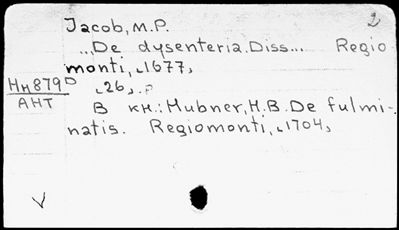 2
Jacob, M.P.
...De dysenteria. Diss... Regio
monti, [1677],
Нм879D [26].p
АНТ В кн.: Hubner, H.B. De fulmi-
natis. Regiomonti, [1704],
V